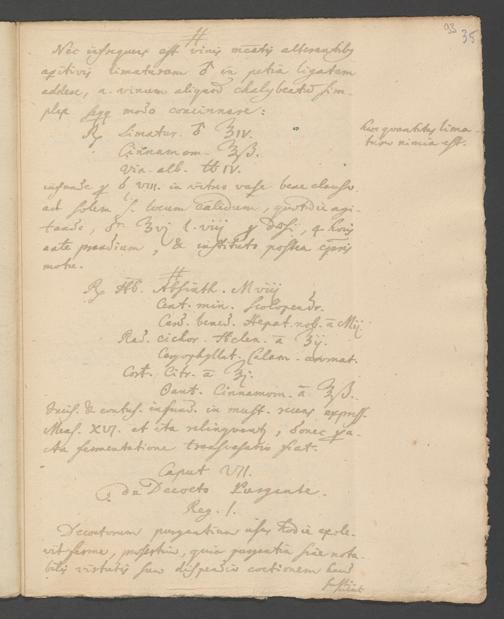 93 35
#
Nec infrequens est vinis meatis alterantibus
apitivis limaturam ♂ in petia ligatam
addere, a. vinum aliquod chalybeatum sim-
plex seqq modo concinnare:
℞ Limatur. ♂ ʒIV.
Cinnamom. ʒß.
Vin. alb. ℔ IV.
hæc quantitas lima-
turæ nimia est.
infund. p d. VIII. in vitreo vase bene clauso.
ad solem l. locum calidum, quotidie agi-
tando, ʒvj l. viij p dosi, 4 horis
ante prandium, & instituto postea corporis
motu.
#
℞ Hb. Absinth. M viij
Cent. min. Scolopendr.
Card. bened. Hepat. nob. ā Mij
Rad. cichor. Helen. ā ʒij.
Caryophyllat. Calam. aromat.
Cort. Citr. ā ʒj.
Aurant. Cinnamom. ā ʒß.
Incis. & contus. infund. in must. recens express.
Mens. XVI. et ita relinquantur, donec pa-
cta fermentatione transvasatio fiat.
Caput VII.
de Decocto Purgante.
Reg. I.
Decoctorum purgantium usus hodie exole-
vit ferme, præsertim, quia purgantia sine nota-
bili virtutis suæ dispendio coctionem haud